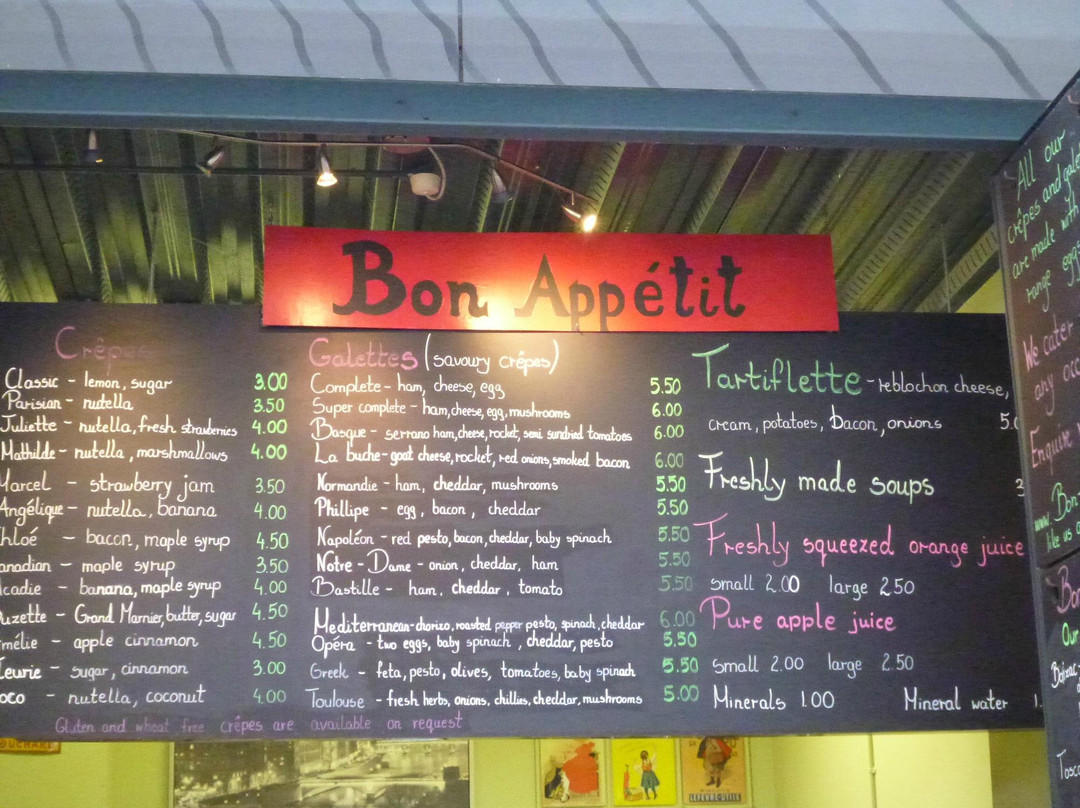 Bon Appétit
Crêpes
Classic - lemon, sugar 3.00
Parisian - nutella 3.50
Juliette - nutella, fresh strawberries 4.00
Mathilde - nutella, marshmallows 4.00
Marcel - strawberry jam 3.50
Angélique - nutella, banana 4.00
hloé - bacon, maple syrup 4.50
anadian - maple syrup 3.50
cadie - banana, maple syrup 4.00
uzette - Grand Marnier, butter, sugar 4.50
mélie - apple cinnamon 4.50
leurie - sugar, cinnamon 3.00
oco - nutella, coconut 4.00
Gluten and wheat free crêpes are available on request
Galettes (savoury crêpes)
Complete - ham, cheese, egg 5.50
Super complete - ham, cheese, egg, mushrooms 6.00
Basque - serrano ham, cheese, rocket, semi sundried tomatoes 6.00
La buche - goat cheese, rocket, red onions, smoked bacon 6.00
Normandie - ham, cheddar, mushrooms 5.50
Phillipe - egg, bacon, cheddar 5.50
Napoléon - red pesto, bacon, cheddar, baby spinach 5.50
Notre-Dame - onion, cheddar, ham 5.50
Bastille - ham, cheddar, tomato 5.50
Mediterranean - chorizo, roasted pepper pesto, spinach, cheddar 6.00
Opéra - two eggs, baby spinach, cheddar, pesto 5.50
Greek - feta, pesto, olives, tomatoes, baby spinach 5.50
Toulouse - fresh herbs, onions, chillies, cheddar, mushrooms 5.00
Tartiflette - reblochon cheese,
cream, potatoes, bacon, onions 5.0
Freshly made soups 3
Freshly squeezed orange juice
small 2.00 large 2.50
Pure apple juice
small 2.00 large 2.50
Minerals 1.00 Mineral water 1.
All our
crêpes and gale
are made with
range eggs
We cater
any occ
Enquire
www.Bon
like us o
Bon
Our
Tosca
LEFEVRE-UTILE